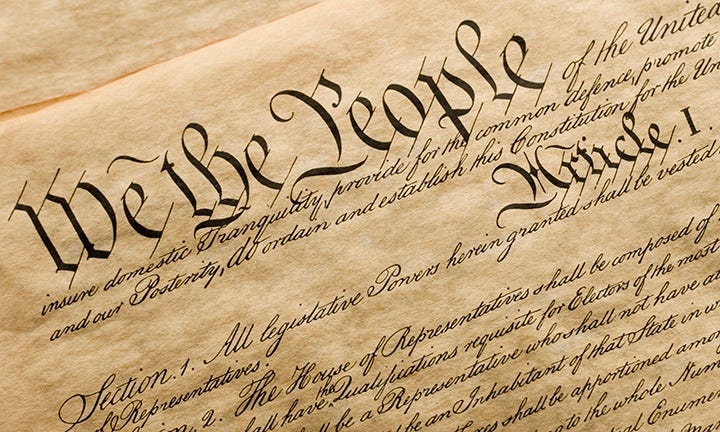 We the People of the United
insure domestic Tranquility, provide for the common defence, promote
and our Posterity, do ordain and establish this Constitution for the Un
Article. I.
Section. 1. All legislative Powers herein granted shall be vested
of Representatives.
n. 2. The House of Representatives shall be composed of
all have the Qualifications requisite for Electors of the most
ll be a Representative who shall not have a
be an Inhabitant of that State in w
es shall be apportioned amon
to the whole Num
al Enumer